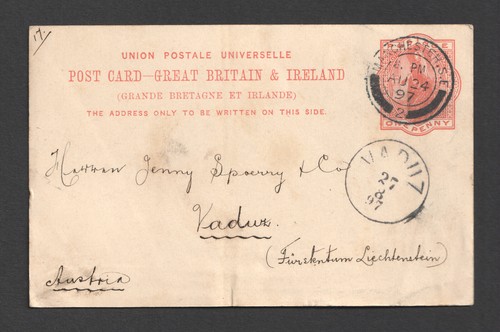 17.
UNION POSTALE UNIVERSELLE
POST CARD—GREAT BRITAIN & IRELAND
(GRANDE BRETAGNE ET IRLANDE)
THE ADDRESS ONLY TO BE WRITTEN ON THIS SIDE.
MANCHESTER.S.E
PM
AU 24
97
2
ONE PENNY
Herren Jenny Spoerry & Co
Vaduz
(Fürstentum Liechtenstein)
Austria
VADUZ
27
8
97